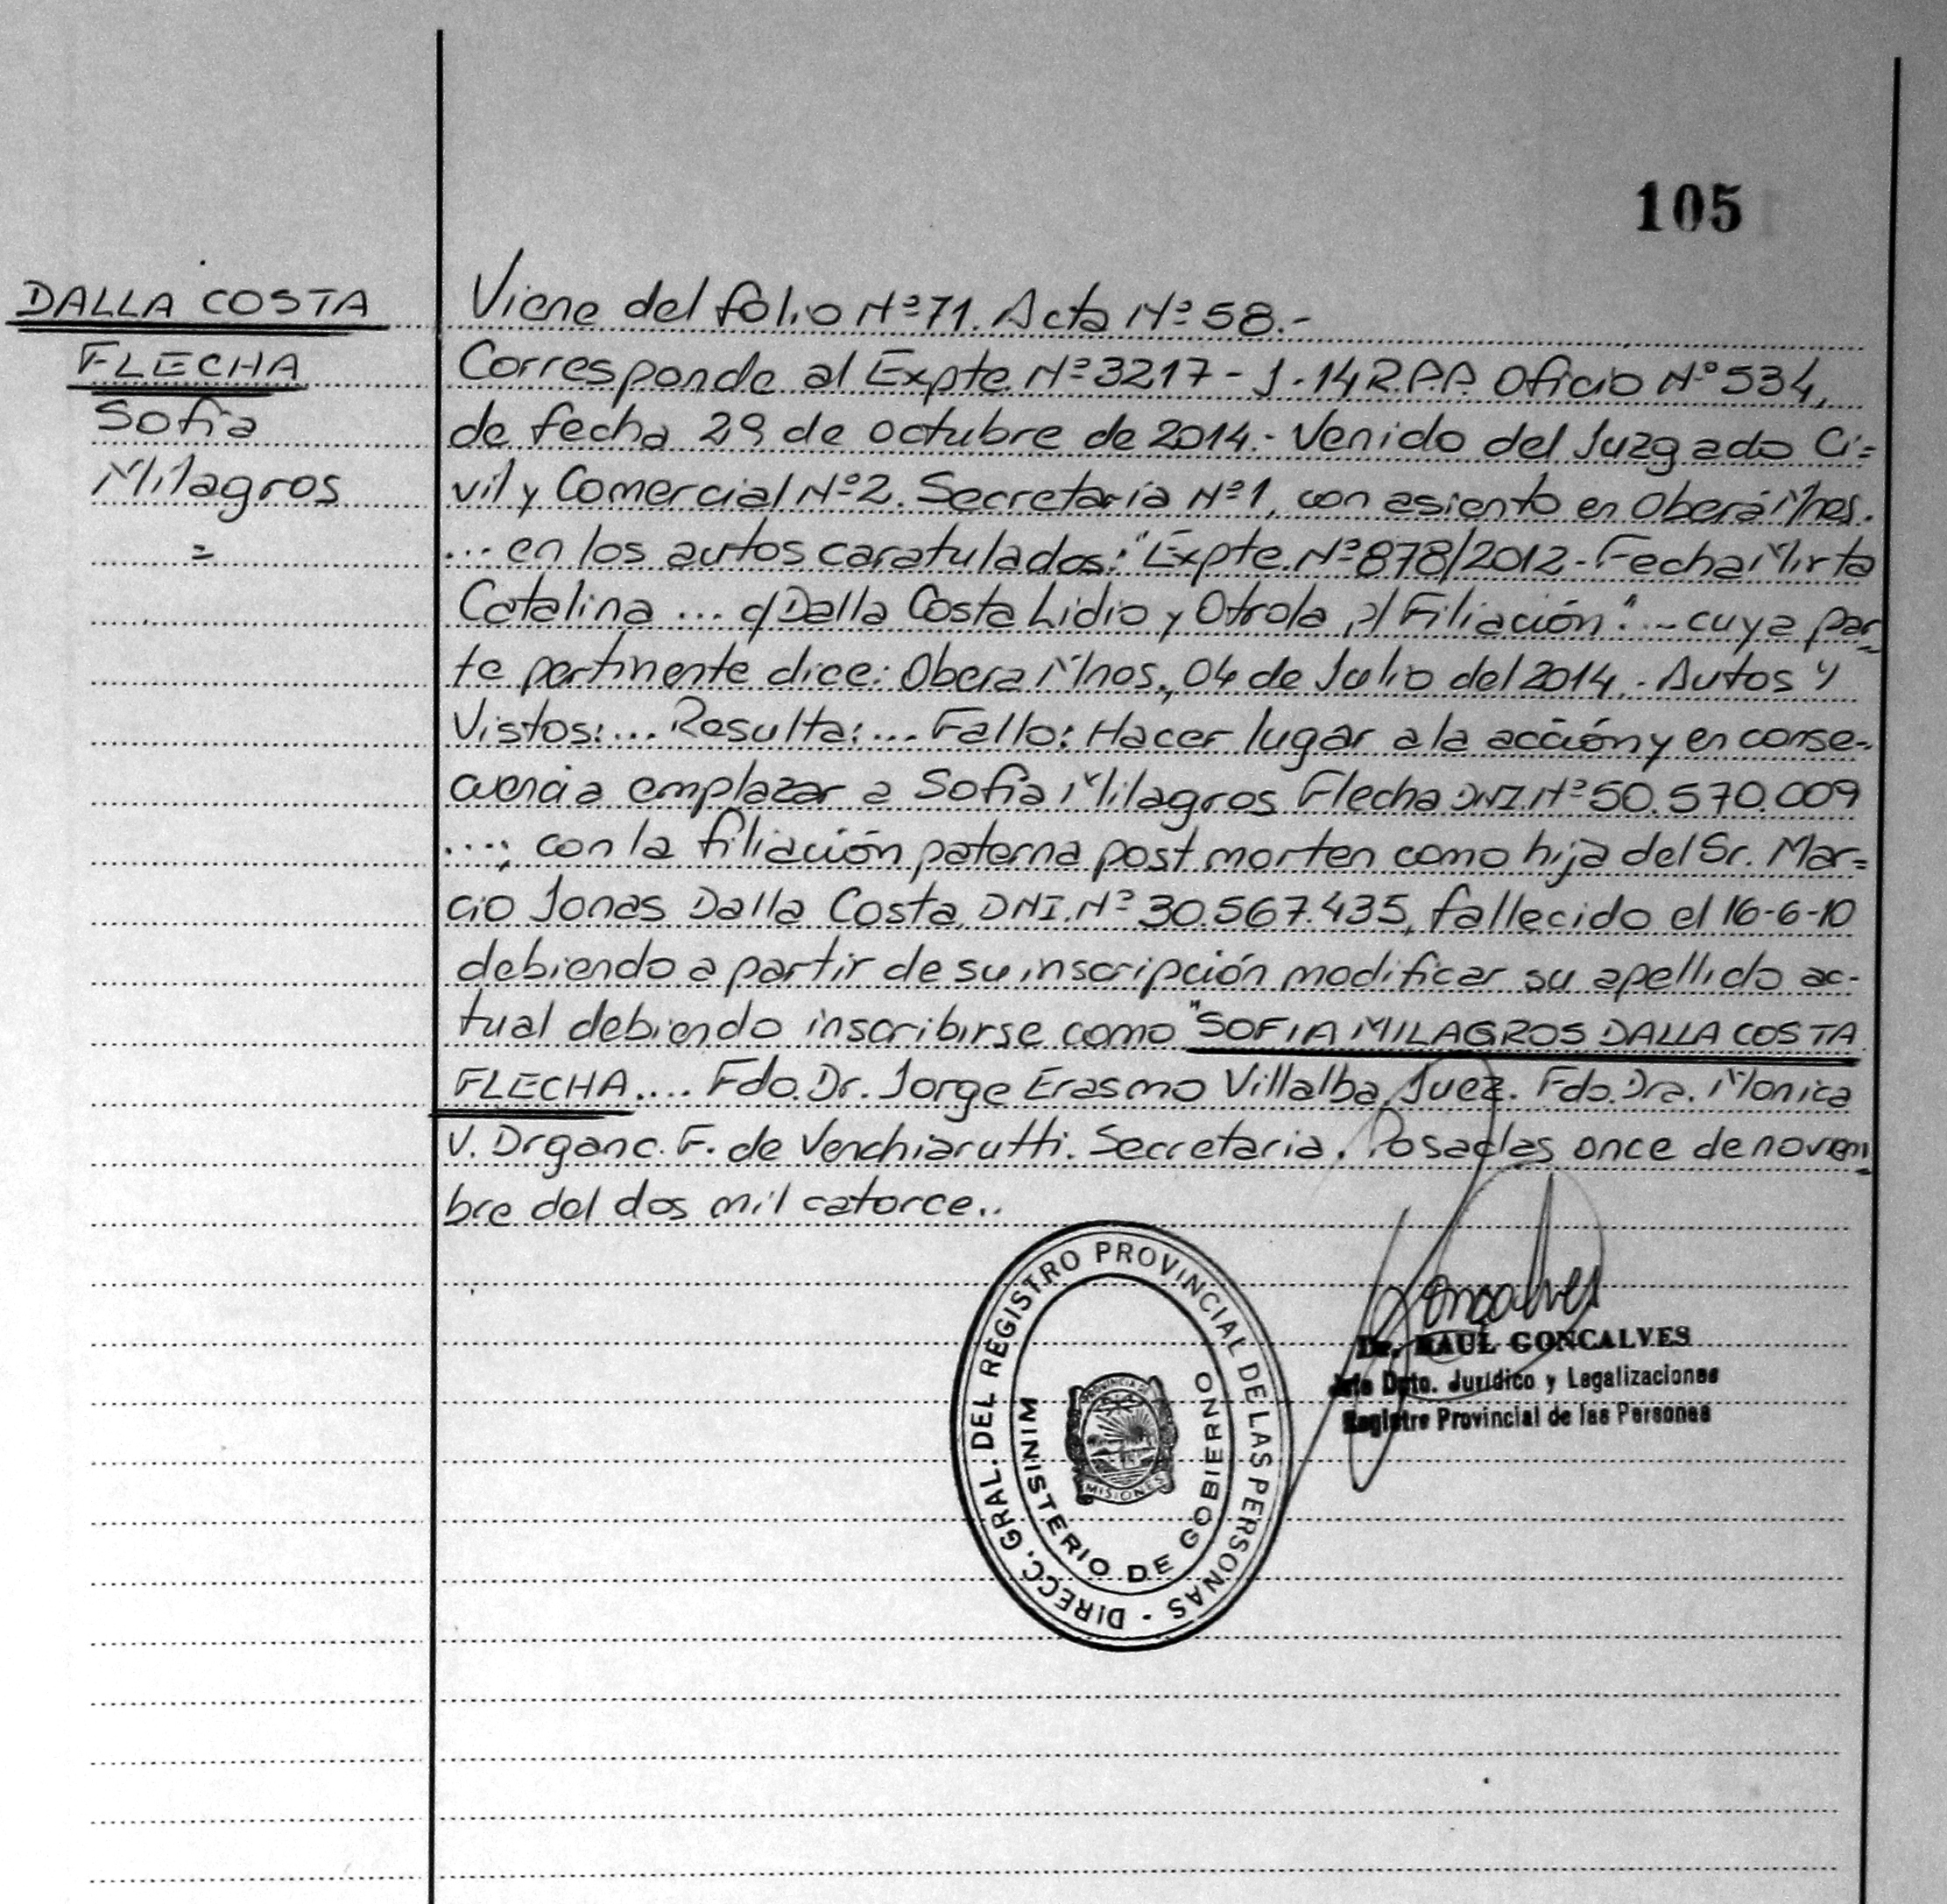 105
DALLA COSTA
FLECHA
Sofia
Milagros
=
Viene del folio Nº 71. Acta Nº 58.-
Corresponde al Expte. Nº 3217 - J - 14 R.P.P. Oficio Nº 534,
de fecha 29 de octubre de 2014.- Venido del Juzgado Ci=
vil y Comercial Nº 2. Secretaría Nº 1, con asiento en Oberá Mnes.
... en los autos caratulados: "Expte. Nº 878/2012 - Fecha Mirta
Catalina ... c/ Dalla Costa Lidio y Otro/a s/ Filiación". ~ cuya par=
te pertinente dice: Obera Mnos., 04 de Julio del 2014.- Autos y
Vistos:... Resulta:... Fallo: Hacer lugar a la acción y en conse-
cuencia emplazar a Sofia Milagros Flecha DNI. Nº 50.570.009
...; con la filiación paterna post morten como hija del Sr. Mar=
cio Jonas Dalla Costa, DNI. Nº 30.567.435, fallecido el 16-6-10
debiendo a partir de su inscripción modificar su apellido ac-
tual debiendo inscribirse como "SOFIA MILAGROS DALLA COSTA
FLECHA.... Fdo. Dr. Jorge Erasmo Villalba, Juez. Fdo. Dra. Monica
V. Drganc. F. de Venchiarutti. Secretaria. Posadas once de novem=
bre del dos mil catorce..
DIRECC. GRAL. DEL REGISTRO PROVINCIAL DE LAS PERSONAS -
MINISTERIO DE GOBIERNO
PROVINCIA DE
MISIONES
Goncalves
Dr. RAUL GONCALVES
Jefe Dpto. Jurídico y Legalizaciones
Registro Provincial de las Personas